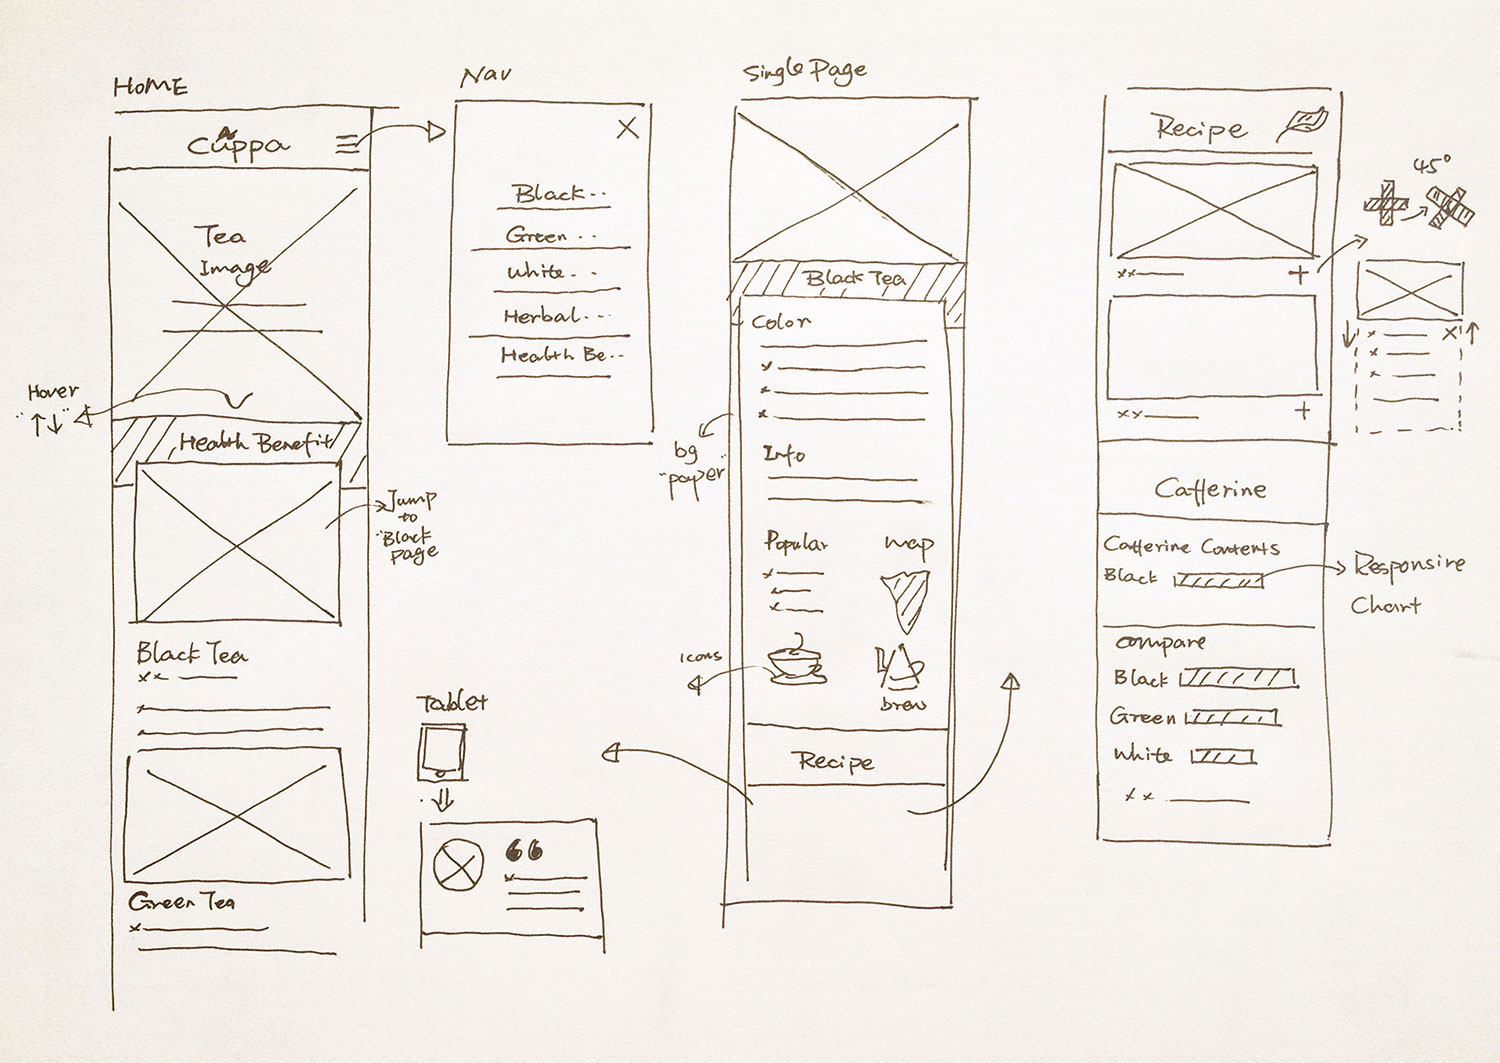 HOME
Cuppa
Tea
Image
Hover
"↑↓"
Health Benefit
Jump
to
"Black
page
Black Tea
xx
Green Tea
Nav
X
Black..
Green ..
White - -
Herbal...
Health Be..
Tablet
“
Single Page
Black Tea
Color
bg
"paper"
Info
Popular
map
icons
brew
Recipe
Recipe
45°
xx
+
X
xx
+
Cafferine
Cafferine Contents
Black
Responsive
Chart
compare
Black
Green
White
xx